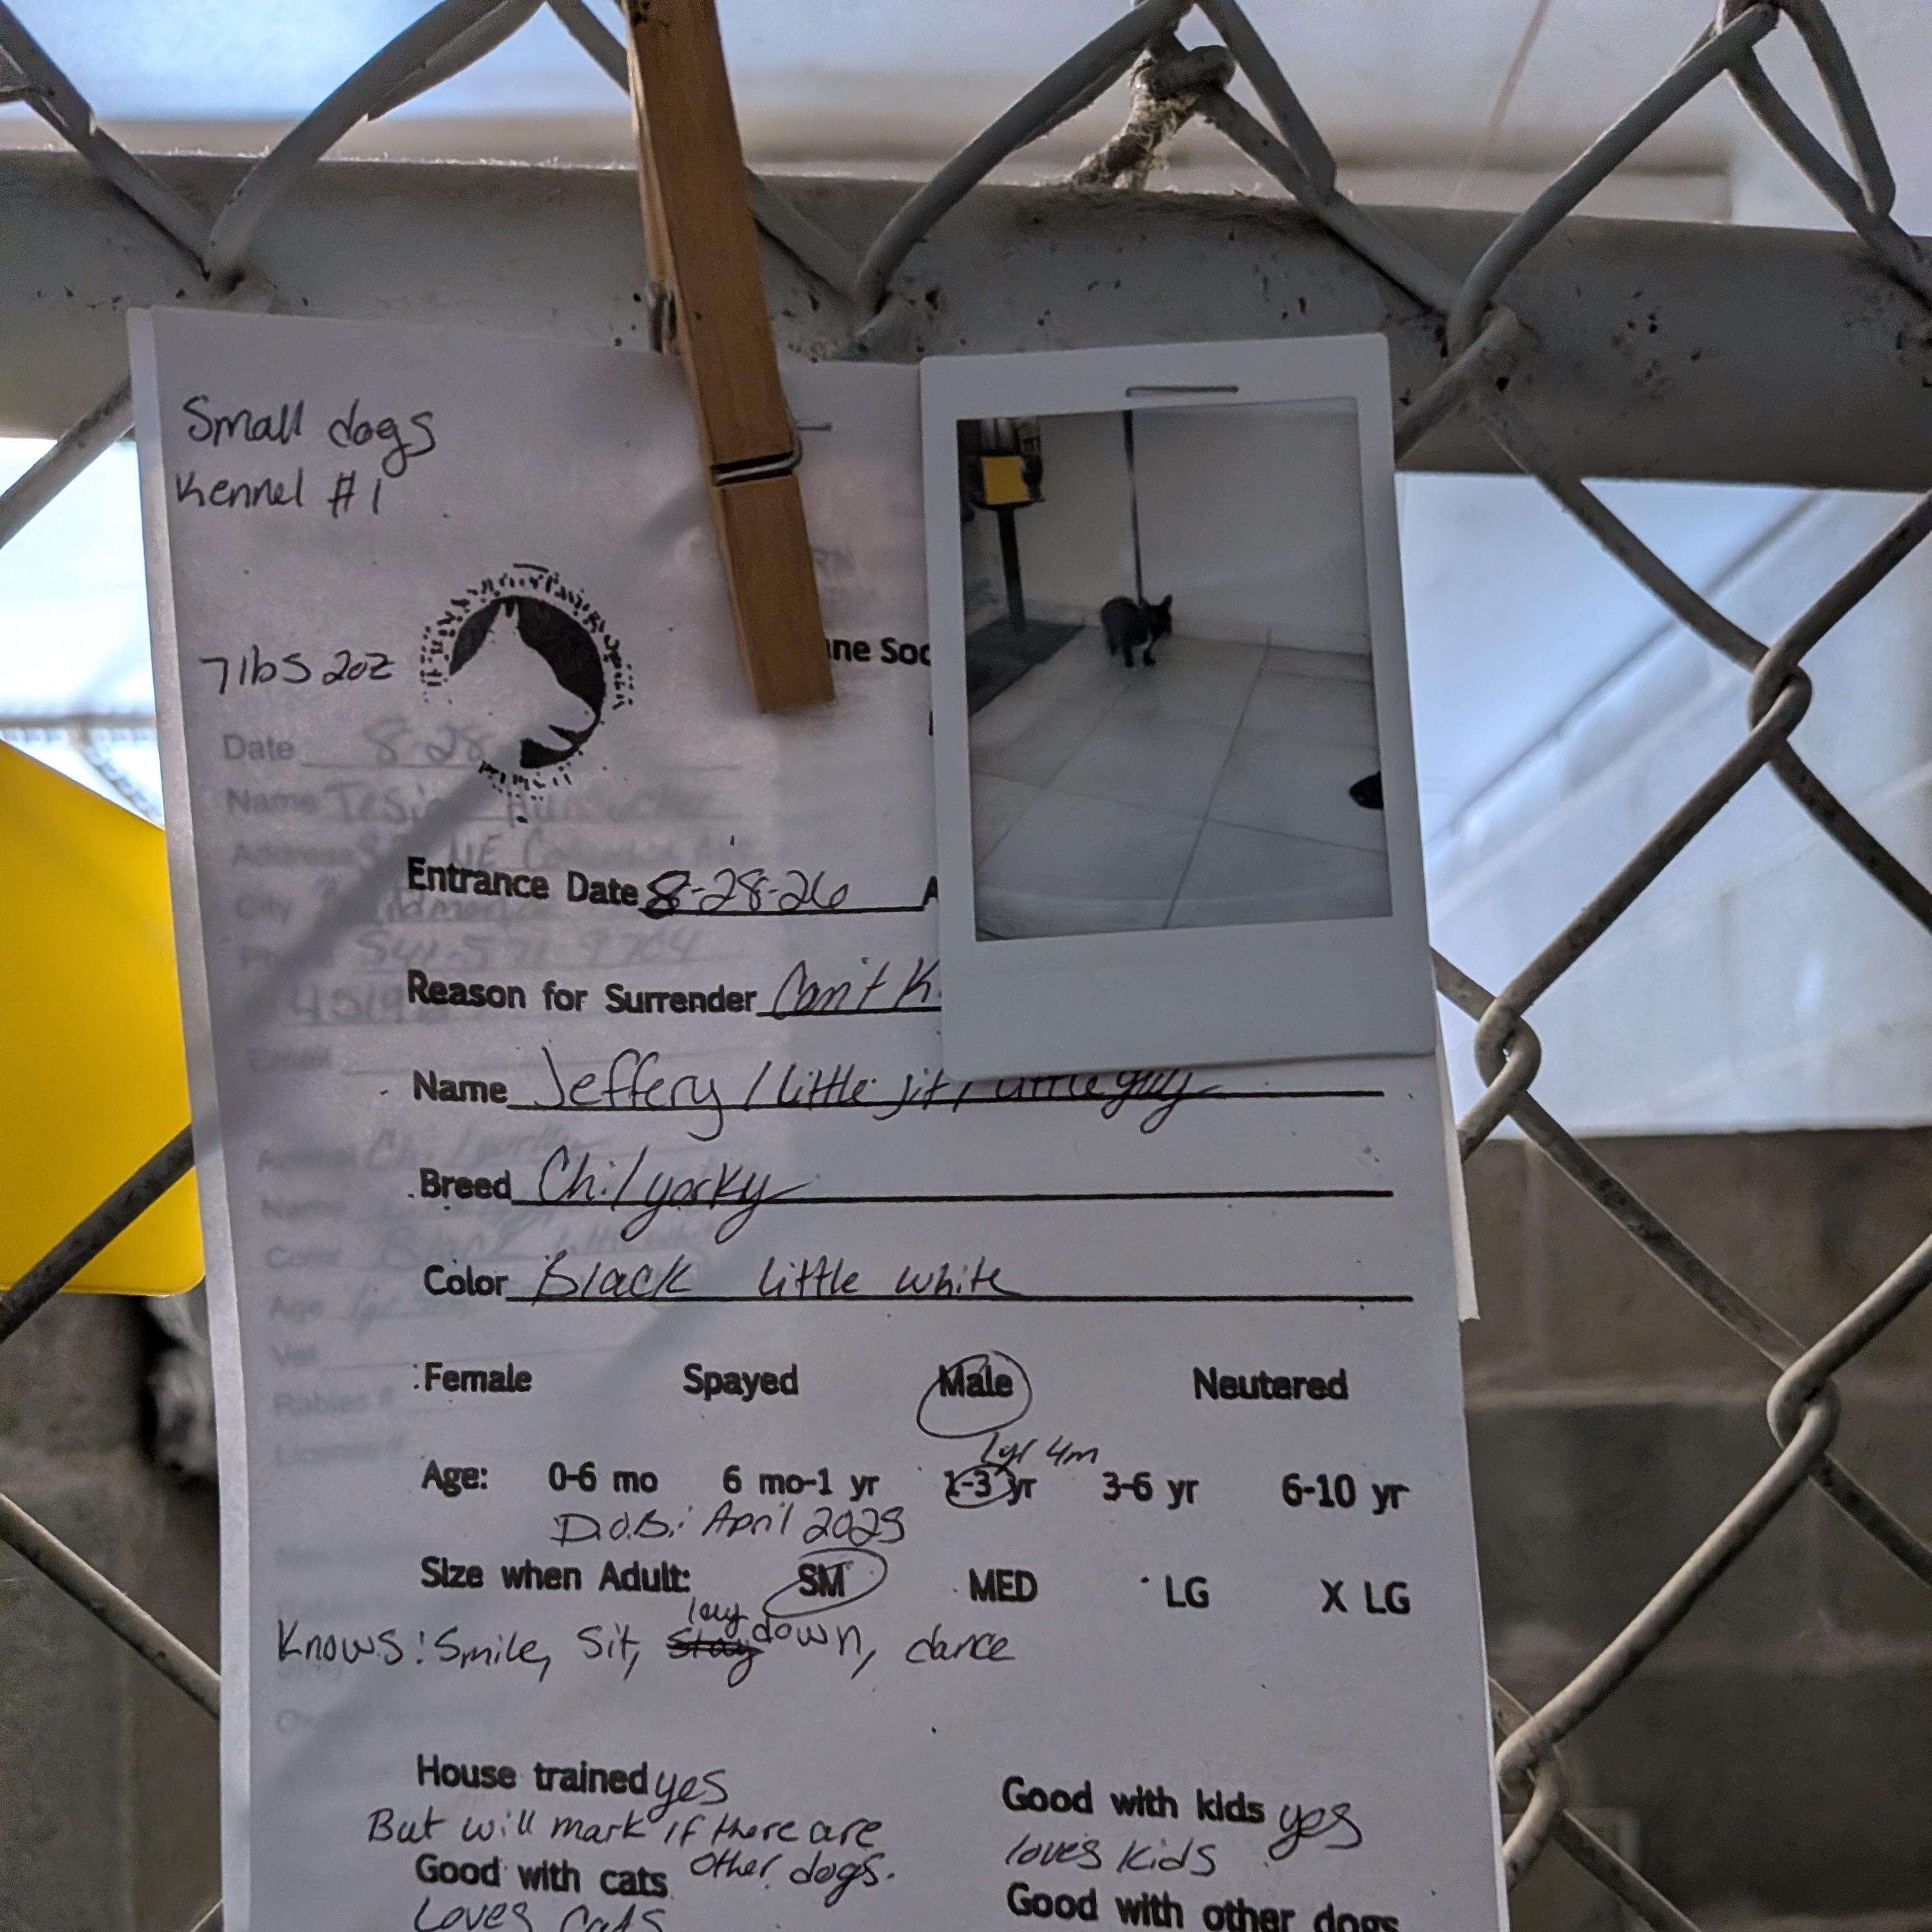 Small dogs
Kennel #1
7lbs 2oz
ne Soc
Date 8-28
Name
Address NE
City
Entrance Date 8-28-26 A
Reason for Surrender Can't K
Email
Name Jeffery / little jit, little guy
Breed Chi/yorky
Color Black little white
Female Spayed Male Neutered
1yr 4m
Age: 0-6 mo 6 mo-1 yr 1-3 yr 3-6 yr 6-10 yr
D.O.B.: April 2025
Size when Adult: SM MED LG X LG
lay
Knows: Smile, Sit, Stay down, dance
House trained yes
Good with kids yes
But will mark if there are
other dogs.
loves kids
Good with cats
Loves Cats
Good with other dogs